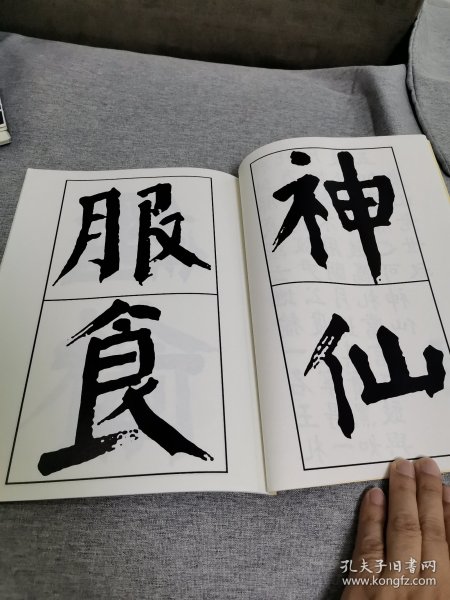 神仙
服食
孔夫子旧书网
www.kongfz.com